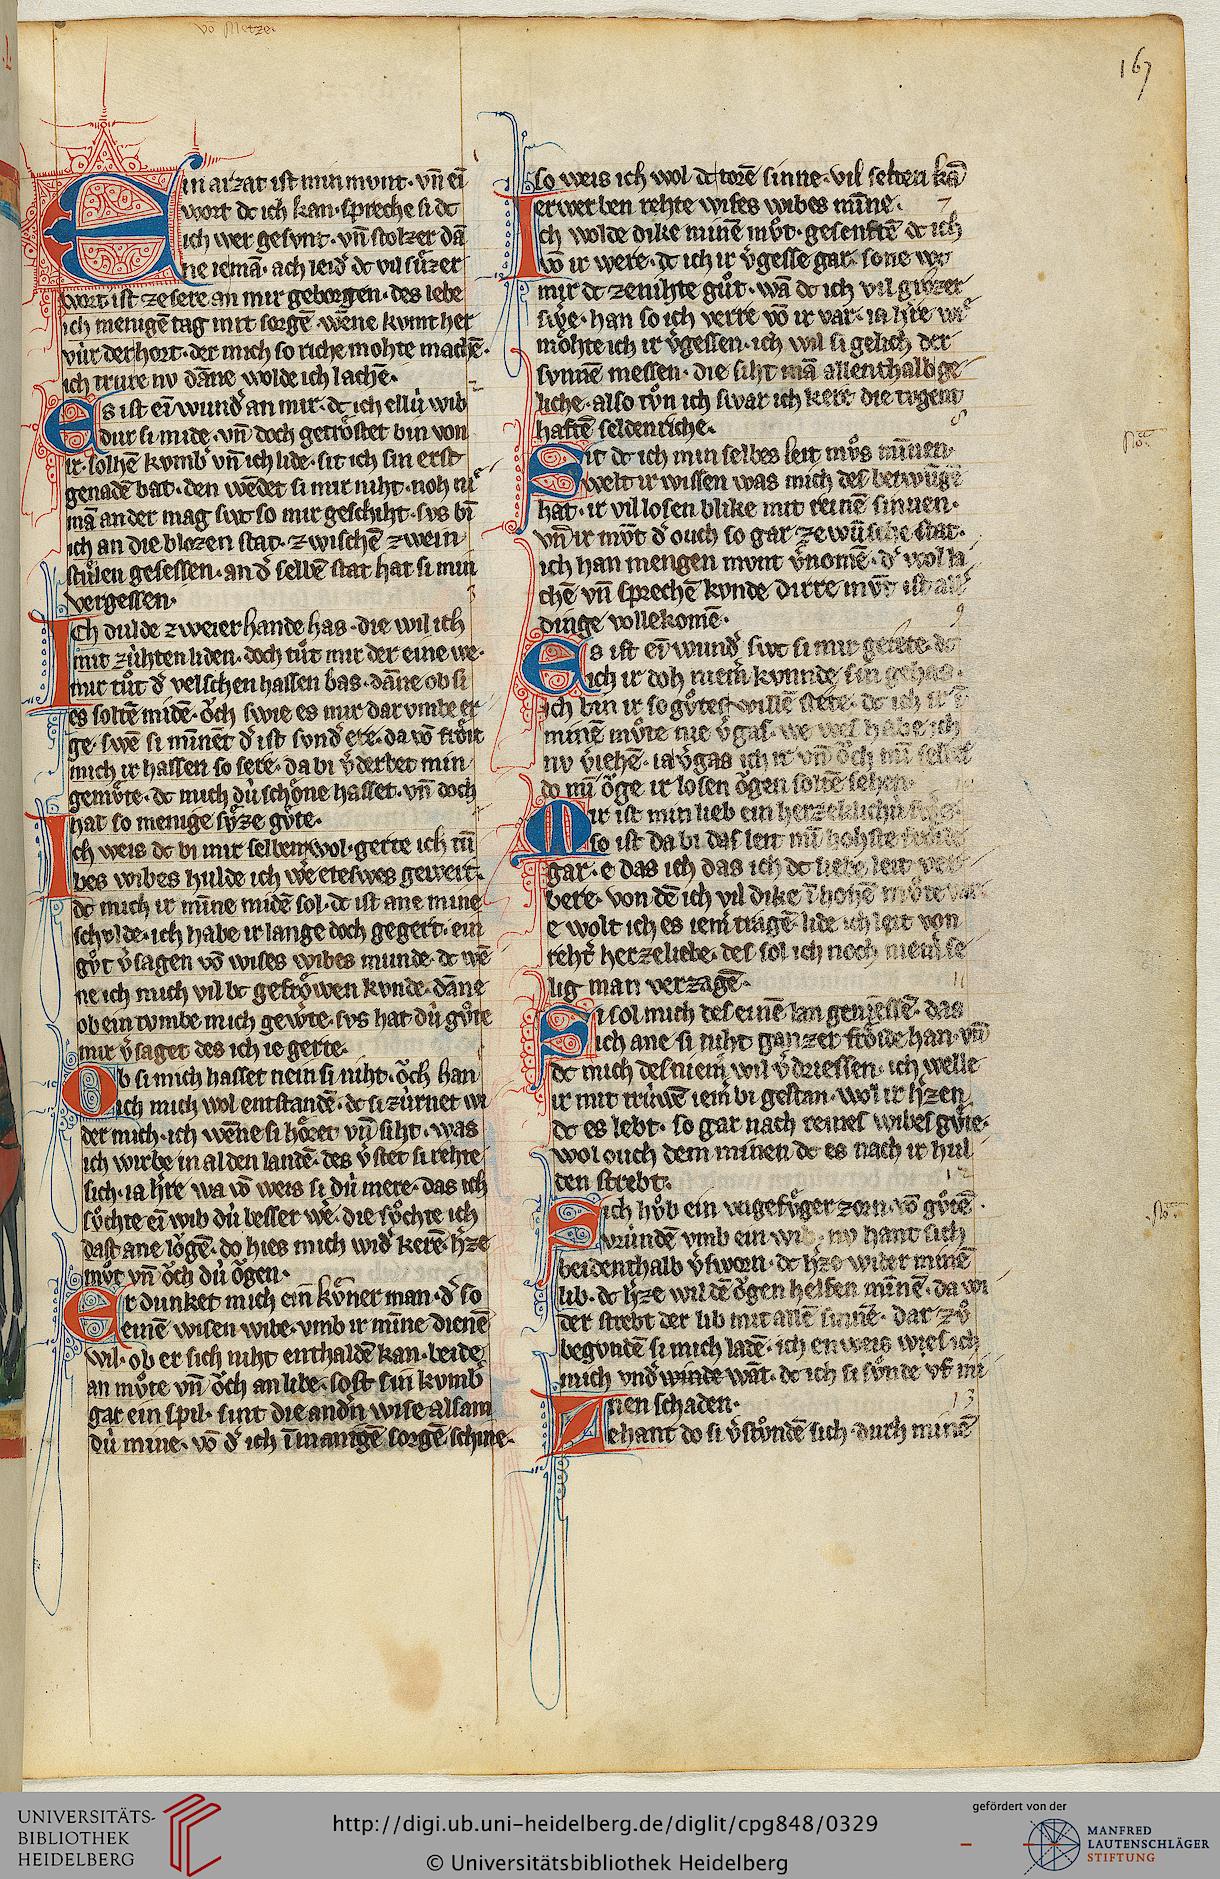 vō Metze.
167
Ein arzat ist min mvnt · vn̄ eī
wort dc ich kan · spreche si dc
ich wer gesvnt · vn̄ stolzer dā
ne iemā · ach leid͛ dc vil sůzer
wort ist ze sere an mir geborgen · des lebe
ich menigē tag mit sorgē · wēne kvmt her
vúr der hort · der mich so riche mohte machē ·
ich trure nv dāne wolde ich lachē ·
Es ist eī wund͛ an mir · dc ich ellú wib
dur si mide · vn̄ doch getrôstet bin von
ir · solhē kvmb͛ vn̄ ich lide · sit ich sin erst
genadē bat · den wēdet si mir niht · noh nie
mā ander mag swc so mir geschiht · svs bī
ich an die blozen stat · zwischē zwein
stůlen gesessen · an d͛ selbē stat hat si min
vergessen ·
Ich dulde zweier hande has · die wil ich
mit zúhten liden · doch tůt mir der eine we ·
mir tůt d͛ velschen hassen bas · dāne ob si
es soltē midē · ôch swie es mir dar vmbe er
ge · swē si mīnēt d͛ ist svnd͛ ere · da vō frôit
mich ir hassen so sere · da bi v͛derbet min
gemv̊te · dc mich dú schône hasset · vn̄ doch
hat so menige sv̊ze gv̊te ·
Ich weis dc bi mir selbem wol · gerte ich tū
bes wibes hulde ich we͛ eteswes gewert ·
dc mich ir mīne midē sol · dc ist ane mine
schvlde · ich habe ir lange doch gegert · ein
gv̊t v͛sagen vō wises wibes munde · dc wē
ne ich mich vil bc gefrôwen kvnde · dāne
ob ein tvmbe mich gewe͛te · svs hat dú gv̊te
mir v͛saget des ich ie gerte ·
Ob si mich hasset nein si niht · ôch han
ich mich wol entstandē · dc si zúrnet wi
der mich · ich wēne si hôret vn̄ siht · was
ich wirbe in al den landē · des v͛stet si rehte
sich · ia h͛re wa vō weis si dú mere · das ich
sv̊chte eī wib dú besser we͛ · die sv̊chte ich
dast ane lôgē · do hies mich wid͛ kerē · h͛ze
mv̊t vn̄ ôch dú ôgen ·
Er dunket mich ein kv̊ner man · d͛ so
einē wisen wibe · vmb ir mīne dienē
wil · ob er sich niht enthaldē kan · beide
an mv̊te vn̄ ôch an libe · sost sin kvmb͛
gar ein spil · sint die and͛n wise alsam
dú mine · vō d͛ ich ī manigē sorgē schine ·
so weis ich wol dc torē sinne · vil selten kā
erwerben rehte wises wibes mīne ·
Ich wolde dike minē mv̊t · gesenftē dc ich
vō ir were · dc ich ir v͛gesse gar · sone wc
mir dc ze nihte gůt · wā dc ich vil grôzer
swe͛e · han so ich verre vō ir var · ia h͛re wie
môhte ich ir v͛gessen · ich wil si gelich der
svnnē messen · die siht mā allenthalb ge
liche · also tv̊n ich swar ich kere die tvgent
haftē seldenriche ·
Sit dc ich min selbes leit mv̊s mīnen
welt ir wissen was mich des betwūgē
hat · ir vil losen blike mit reinē sinnen ·
vn̄ ir mv̊t d͛ ouch so gar ze wūsche stat ·
ich han mengen mvnt v͛nomē · d͛ wol la
chē vn̄ sprechē kvnde dirre mv̊t ist all͛
dinge vollekomē ·
Es ist eī wund͛ swc si mir getete · dc
ich ir doh niem͛ kvnnde sin gehas ·
ich bin ir so gv̊tes willē stete · dc ich ir ī
minē mv̊te nie v͛gas · we wes habe ich
nv v͛iehē · ia v͛gas ich ir vn̄ ôch mī selbes
do mī ôge ir losen ôgen soltē sehen ·
Mir ist min lieb ein herzeklichú
so ist da bi das leit mī hohste frôide
gar · e das ich das ich dc liebe leit ver
bere · von dē ich vil dike ī hohē mv̊te var
e wolt ich es iem͛ tragē · lide ich leit von
reht͛ herzeliebe · des sol ich noch niem͛ se
lig man verzagē ·
Si sol mich des einē lan geniessē · das
ich ane si niht ganzer frôide han · vn̄
dc mich des niem͛ wil v͛driessen · ich welle
ir mit trúwē iem͛ bi gestan · wol ir h͛zen
dc es lebt · so gar nach reines wibes gv̊te ·
wol ouch dem minen dc es nach ir hul
den strebt ·
Sich hv̊b ein vngefv̊ger zorn · vō gv̊tē
vrúndē vmb ein wib · nv hant sich
beidenthalb v͛sworn · dc h͛ze wider minē
lib · dc h͛ze wil dē ôgen helfen mīnē · da wi
der strebt der lib mit allē sinnē · dar zů
begvndē si mich ladē · ich en weis wies ich
mich vnd͛winde wāt · dc ich si sv̊nde vf mi
nen schaden ·
Zehant do si v͛stůndē sich · durh minē
UNIVERSITÄTS-
BIBLIOTHEK
HEIDELBERG
http://digi.ub.uni-heidelberg.de/diglit/cpg848/0329
© Universitätsbibliothek Heidelberg
gefördert von der
MANFRED
LAUTENSCHLÄGER
STIFTUNG